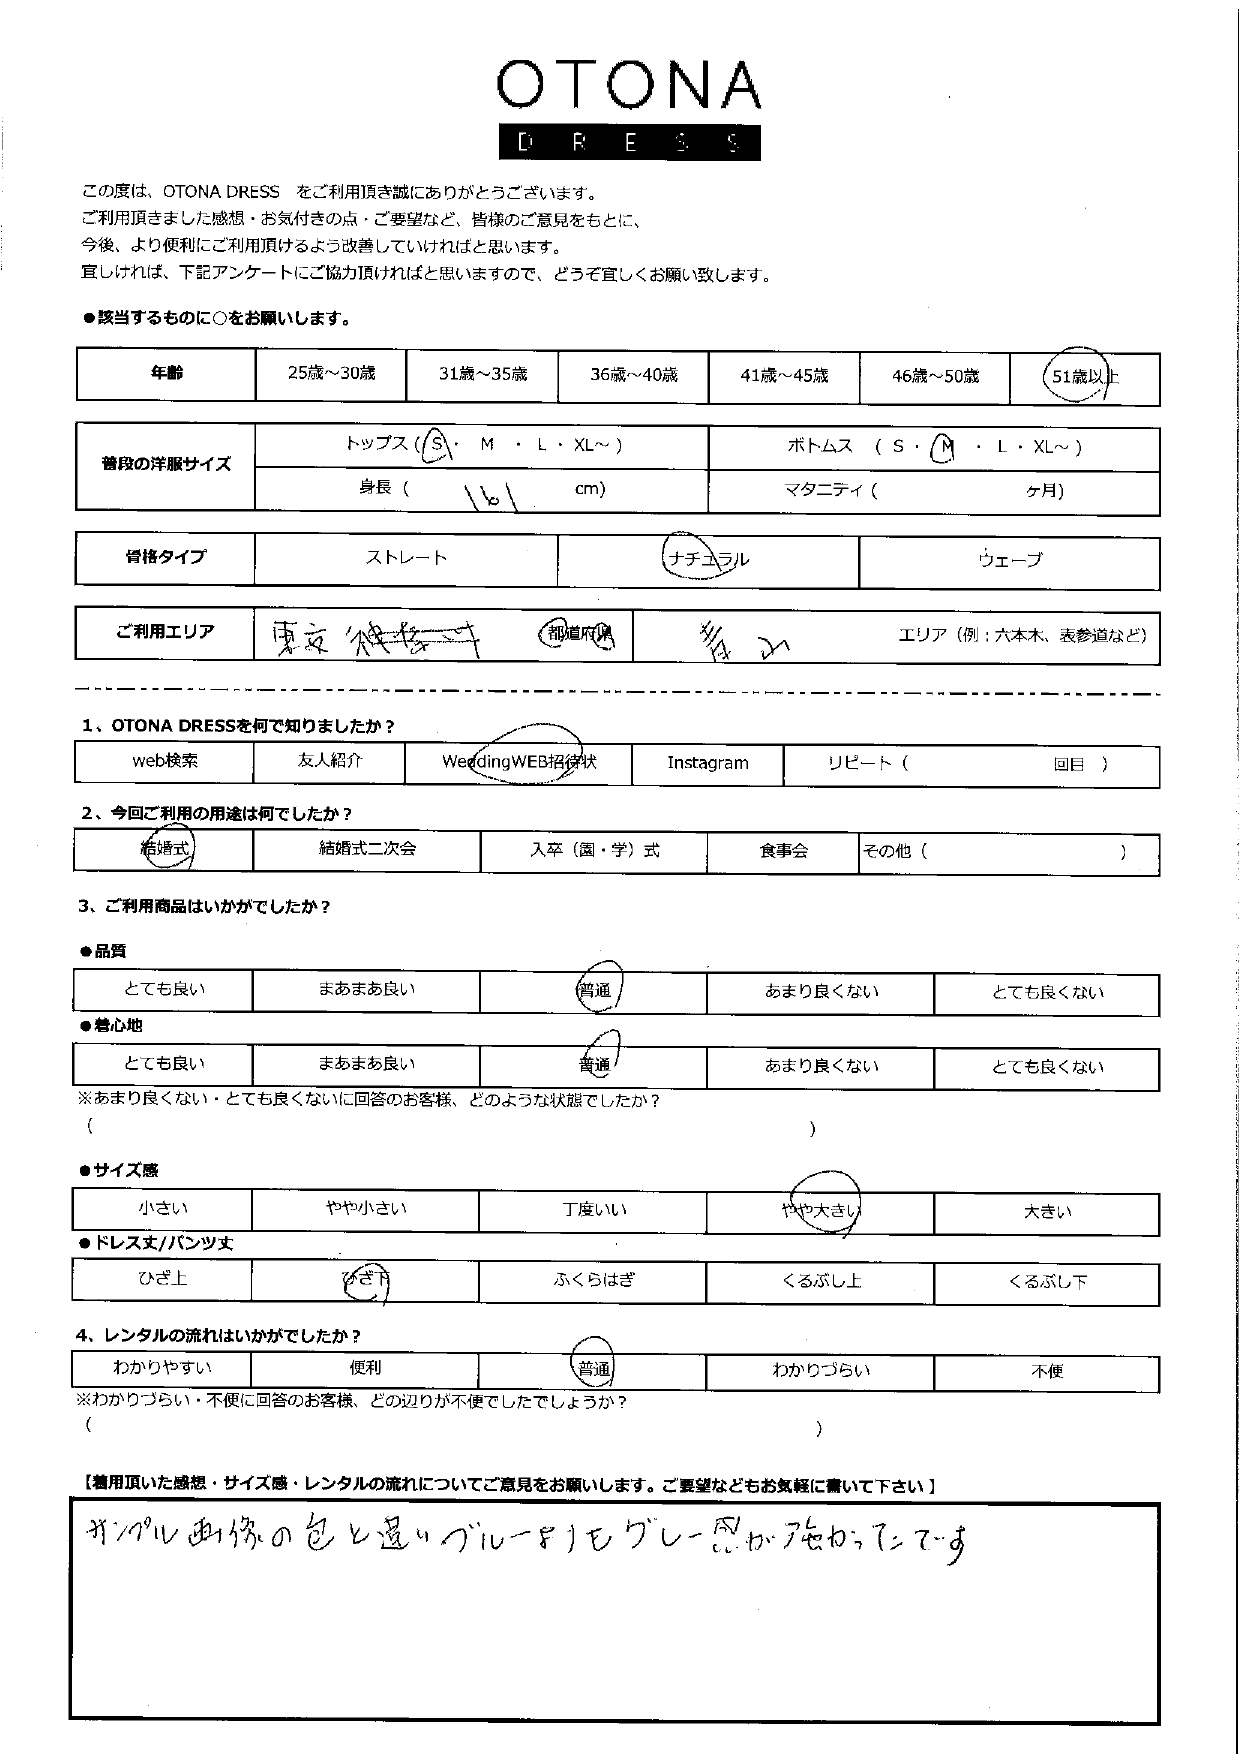 OTONA
DRESS
この度は、OTONA DRESS　をご利用頂き誠にありがとうございます。
ご利用頂きました感想・お気付きの点・ご要望など、皆様のご意見をもとに、
今後、より便利にご利用頂けるよう改善していければと思います。
宜しければ、下記アンケートにご協力頂ければと思いますので、どうぞ宜しくお願い致します。
●該当するものに○をお願いします。
年齢 25歳～30歳 31歳～35歳 36歳～40歳 41歳～45歳 46歳～50歳 51歳以上
普段の洋服サイズ トップス（ S ・ M ・ L ・ XL～ ） ボトムス （ S ・ M ・ L ・ XL～ ）
身長（ 161 cm） マタニティ（ ヶ月）
骨格タイプ ストレート ナチュラル ウェーブ
ご利用エリア 東京 都道府県 青山 エリア（例：六本木、表参道など）
1、OTONA DRESSを何で知りましたか？
web検索 友人紹介 WeddingWEB招待状 Instagram リピート（ 回目 ）
2、今回ご利用の用途は何でしたか？
結婚式 結婚式二次会 入卒（園・学）式 食事会 その他（ ）
3、ご利用商品はいかがでしたか？
●品質
とても良い まあまあ良い 普通 あまり良くない とても良くない
●着心地
とても良い まあまあ良い 普通 あまり良くない とても良くない
※あまり良くない・とても良くないに回答のお客様、どのような状態でしたか？
（ ）
●サイズ感
小さい やや小さい 丁度いい やや大きい 大きい
●ドレス丈/パンツ丈
ひざ上 ひざ下 ふくらはぎ くるぶし上 くるぶし下
4、レンタルの流れはいかがでしたか？
わかりやすい 便利 普通 わかりづらい 不便
※わかりづらい・不便に回答のお客様、どの辺りが不便でしたでしょうか？
（ ）
【着用頂いた感想・サイズ感・レンタルの流れについてご意見をお願いします。ご要望などもお気軽に書いて下さい】
サンプル画像の色と違いブルーよりもグレー感が強かったです